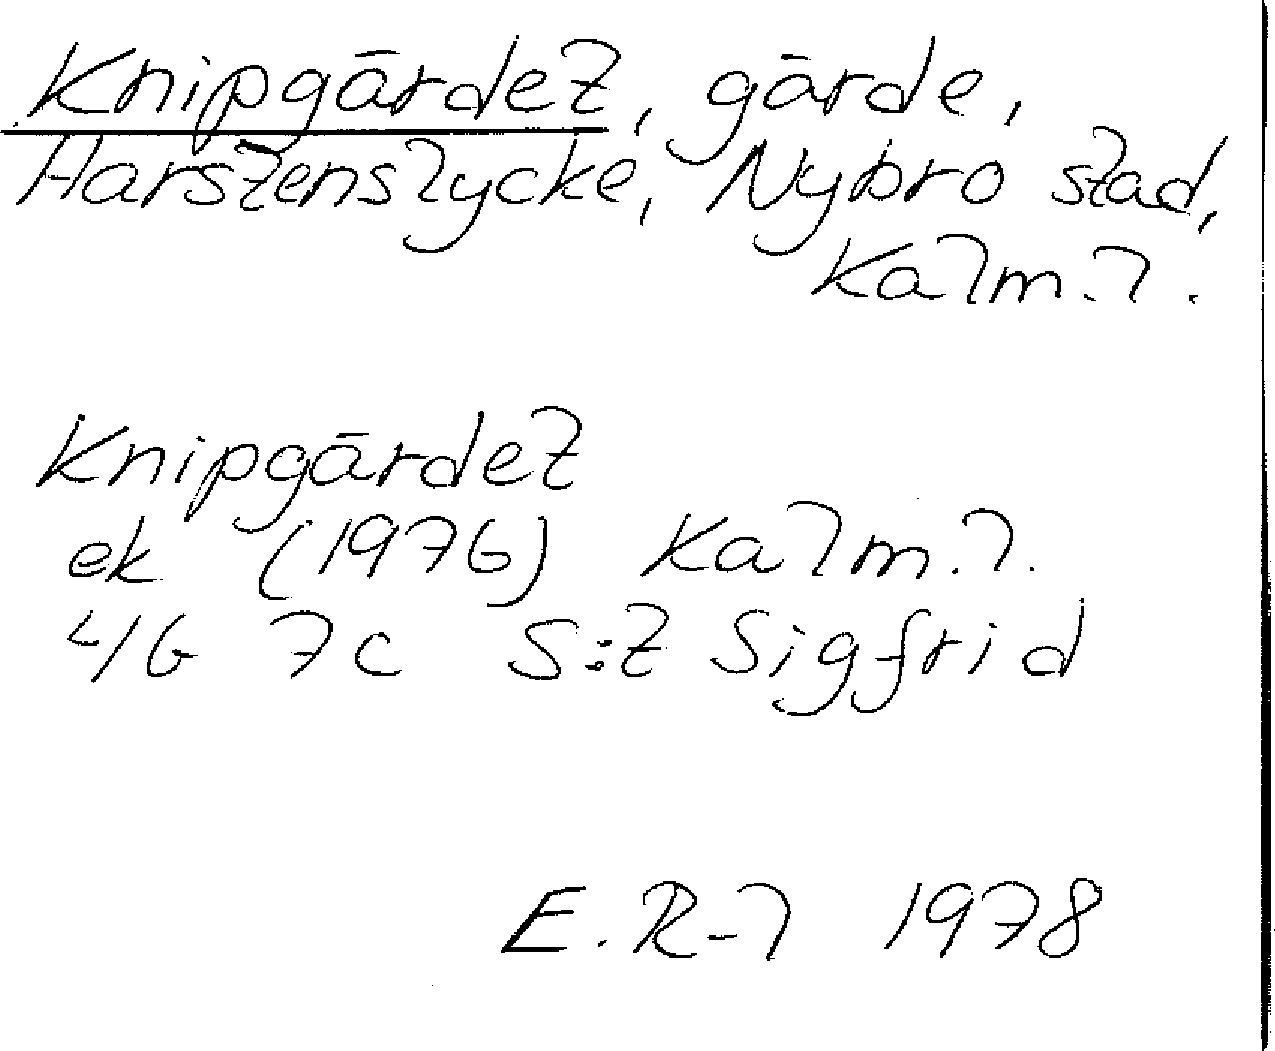 Knipgärdet, gärde,
Harstenslycke, Nybro stad,
Kalm.l.
Knipgärdet
ek (1976) Kalm.l.
4G 7c S:t Sigfrid
E.R-l 1978